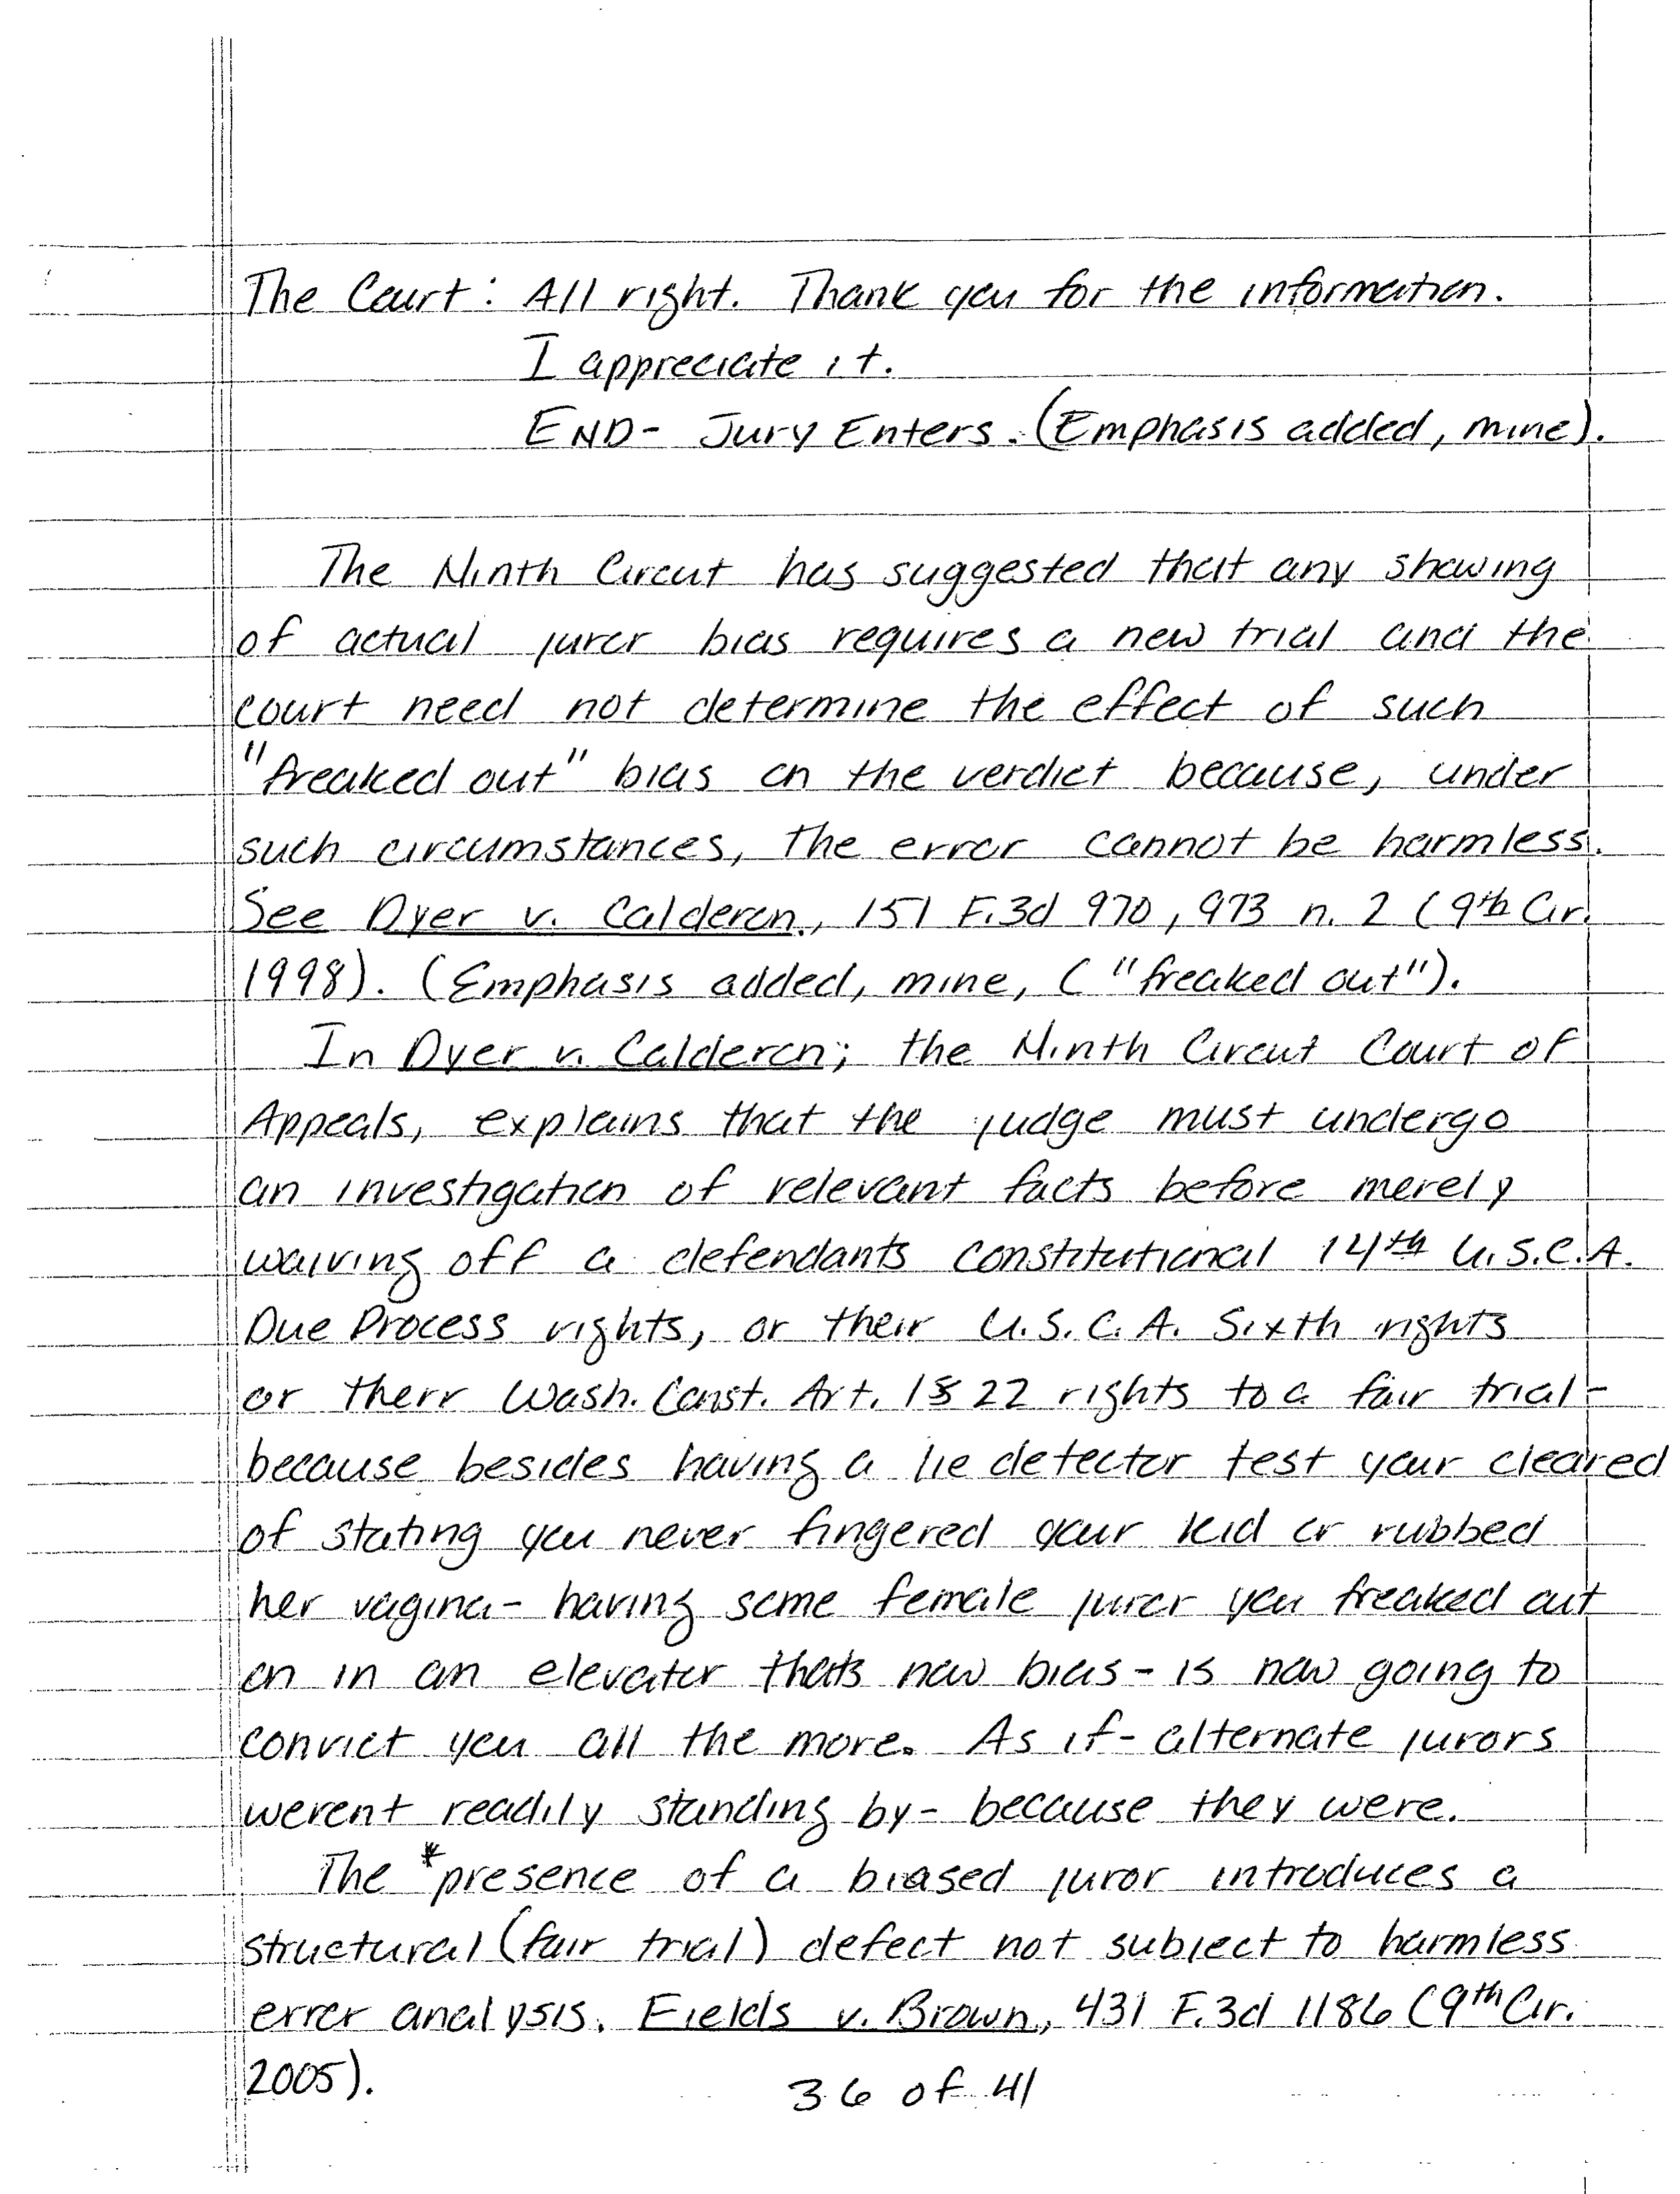 The Court: All right. Thank you for the information.
I appreciate it.
END- Jury Enters. (Emphasis added, mine).
The Ninth Circut has suggested that any showing
of actual juror bias requires a new trial and the
court need not determine the effect of such
"freaked out" bias on the verdict because, under
such circumstances, the error cannot be harmless.
See Dyer v. Calderon, 151 F.3d 970, 973 n. 2 (9th Cir.
1998). (Emphasis added, mine, ("freaked out").
In Dyer v. Calderon; the Ninth Circut Court of
Appeals, explains that the judge must undergo
an investigation of relevant facts before merely
waiving off a defendants constitutional 14th U.S.C.A.
Due Process rights, or their U.S.C.A. Sixth rights
or therr Wash. Const. Art. 1 § 22 rights to a fair trial-
because besides having a lie detector test your cleared
of stating you never fingered your kid or rubbed
her vagina- having some female juror you freaked out
on in an elevator thats now bias- is now going to
convict you all the more. As if- alternate jurors
werent readily standing by- because they were.
The *presence of a biased juror introduces a
structural (fair trial) defect not subject to harmless
error analysis. Fields v. Brown, 431 F.3d 1186 (9th Cir.
2005).
36 of 41